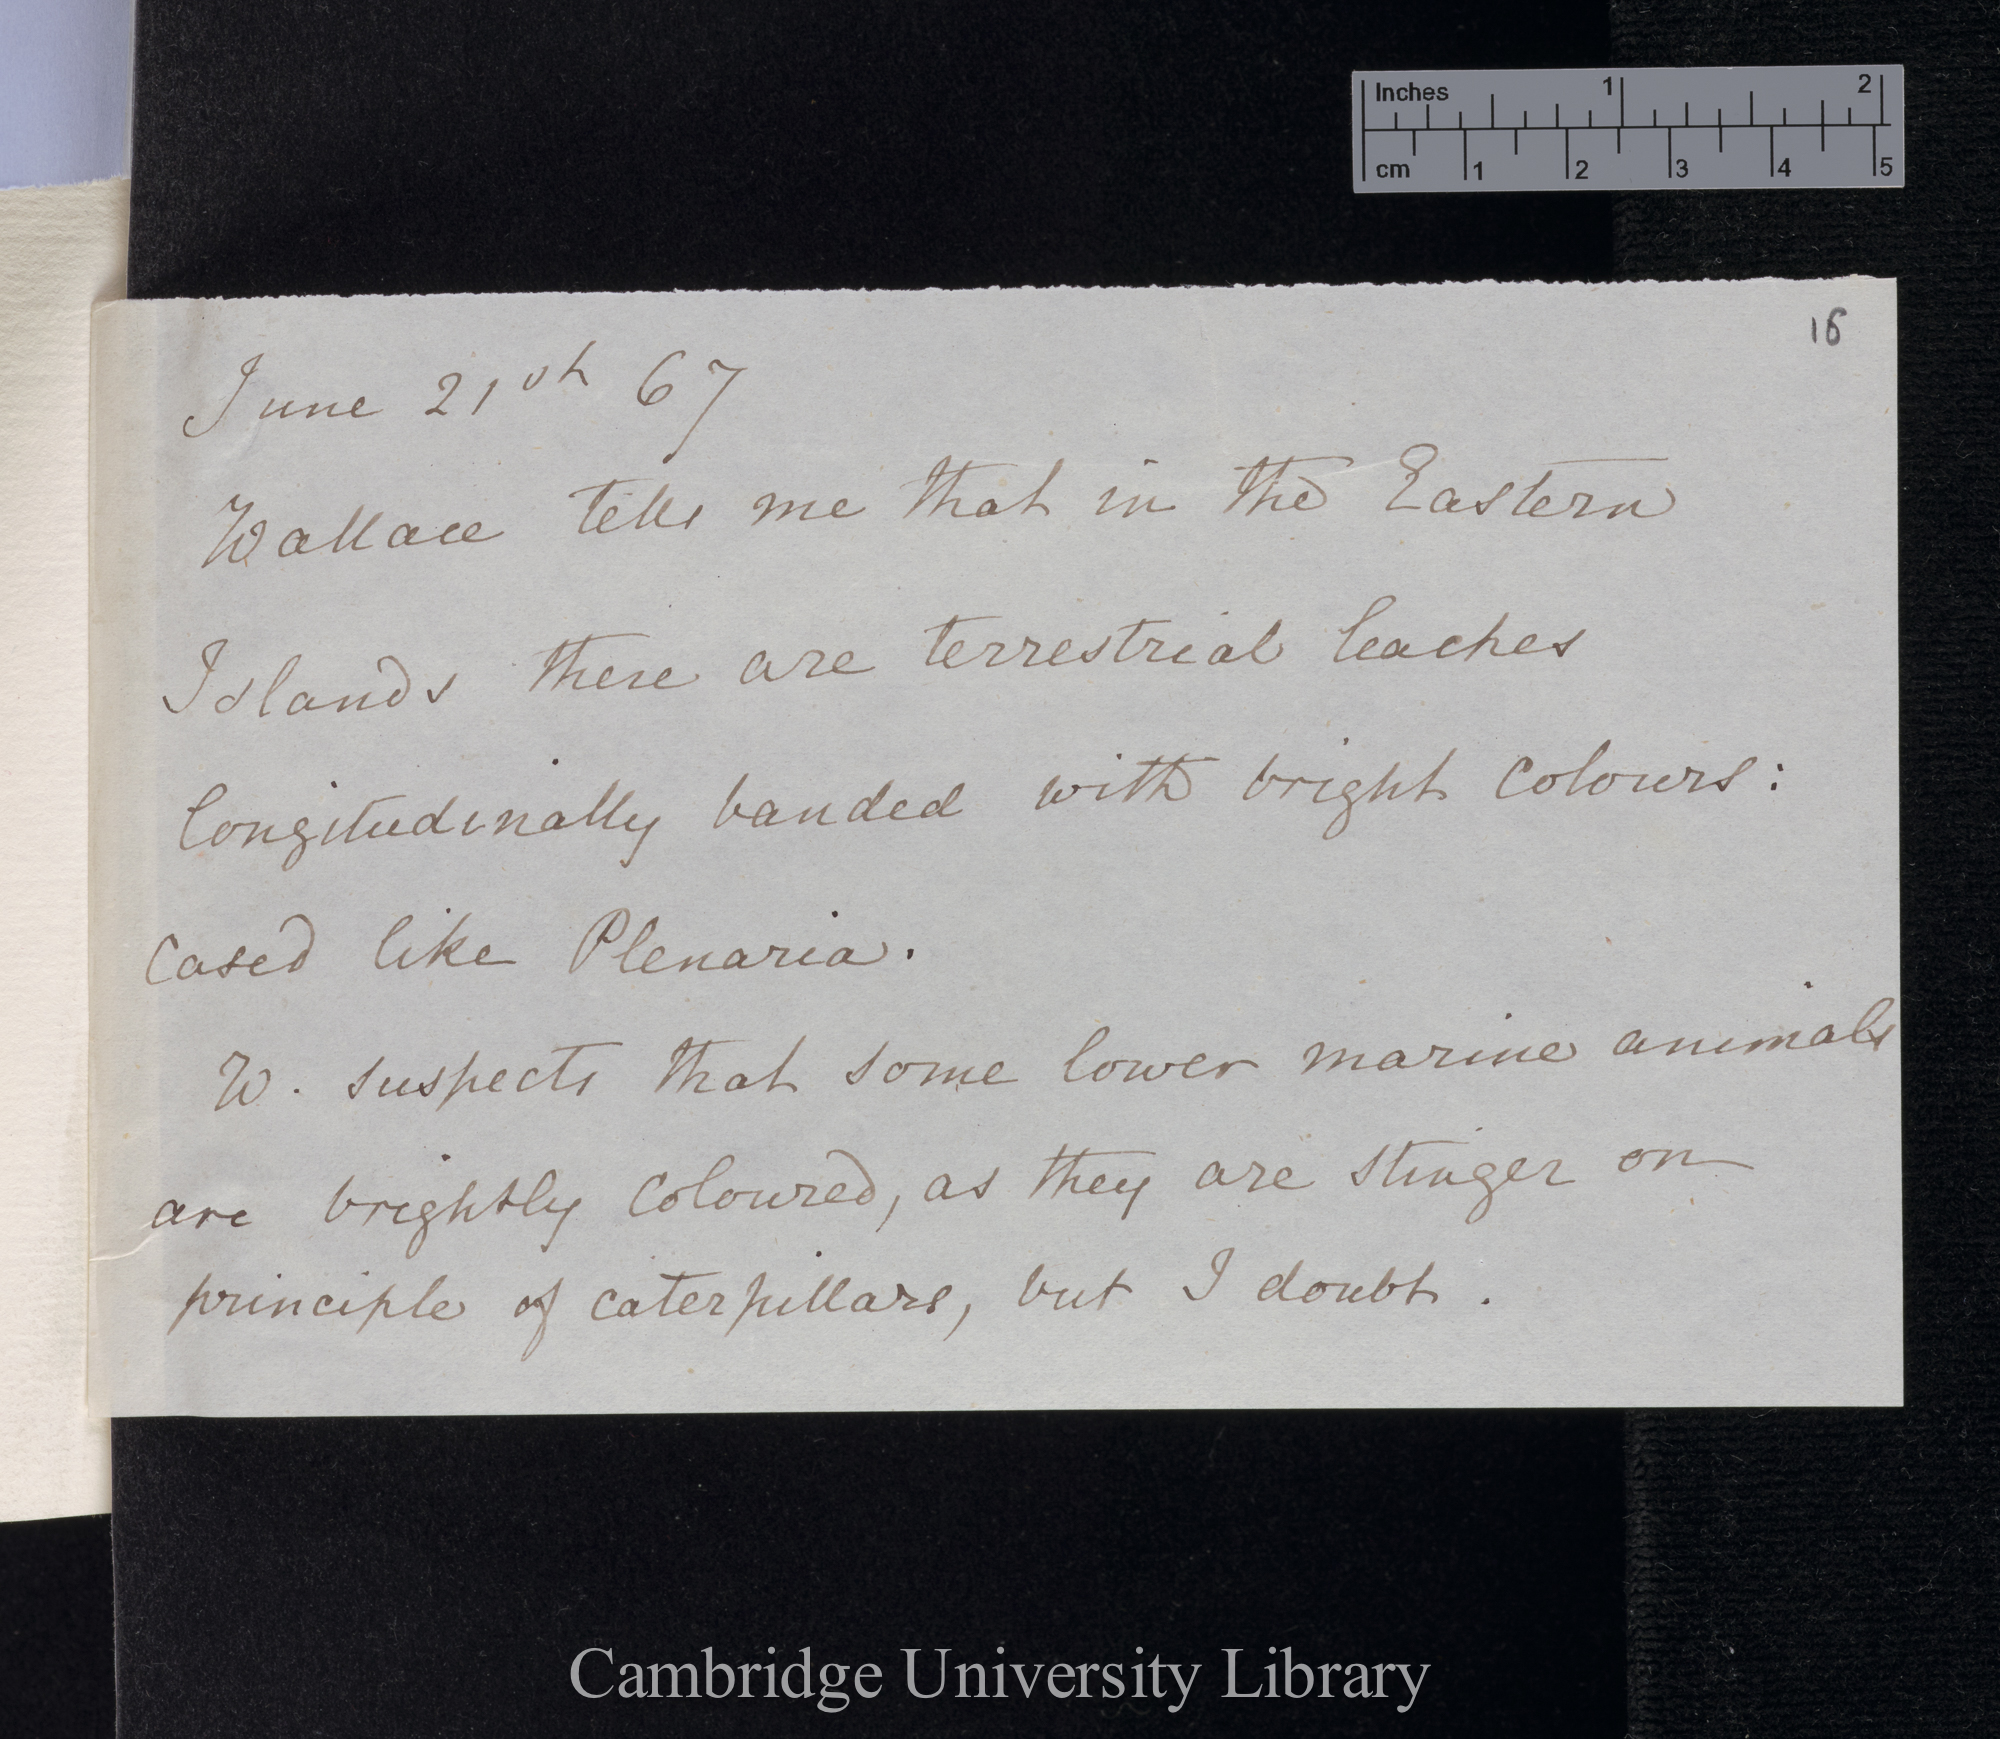 Inches 1 2
cm 1 2 3 4 5
16
June 21st 67
Wallace tells me that in the Eastern
Islands there are terrestrial leaches
longitudinally banded with bright colours:
cased like Plenaria.
W. suspects that some lower marine animals
are brightly coloured, as they are stinger on
principle of caterpillars, but I doubt.
Cambridge University Library